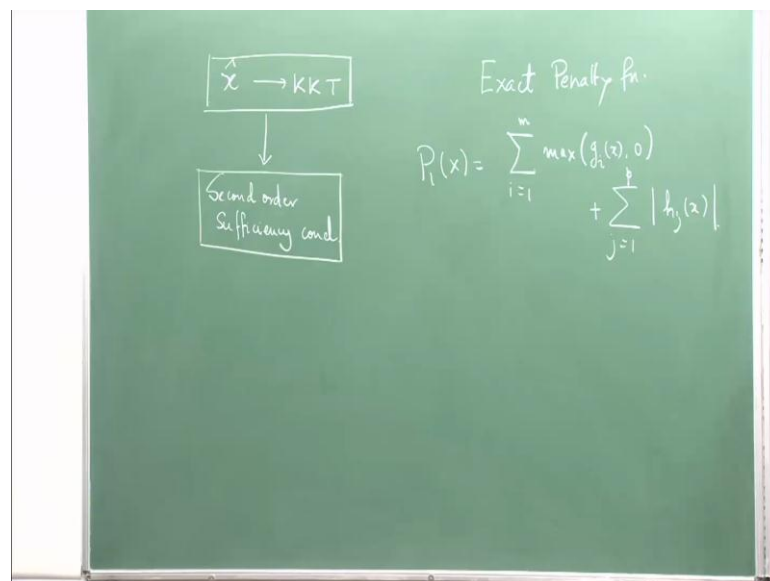 x̂ → KKT
Second order
Sufficiency cond.
Exact Penalty fn.
P₁(x) = ∑_{i=1}^{m} max(gᵢ(x), 0)
+ ∑_{j=1}^{p} |hⱼ(x)|.